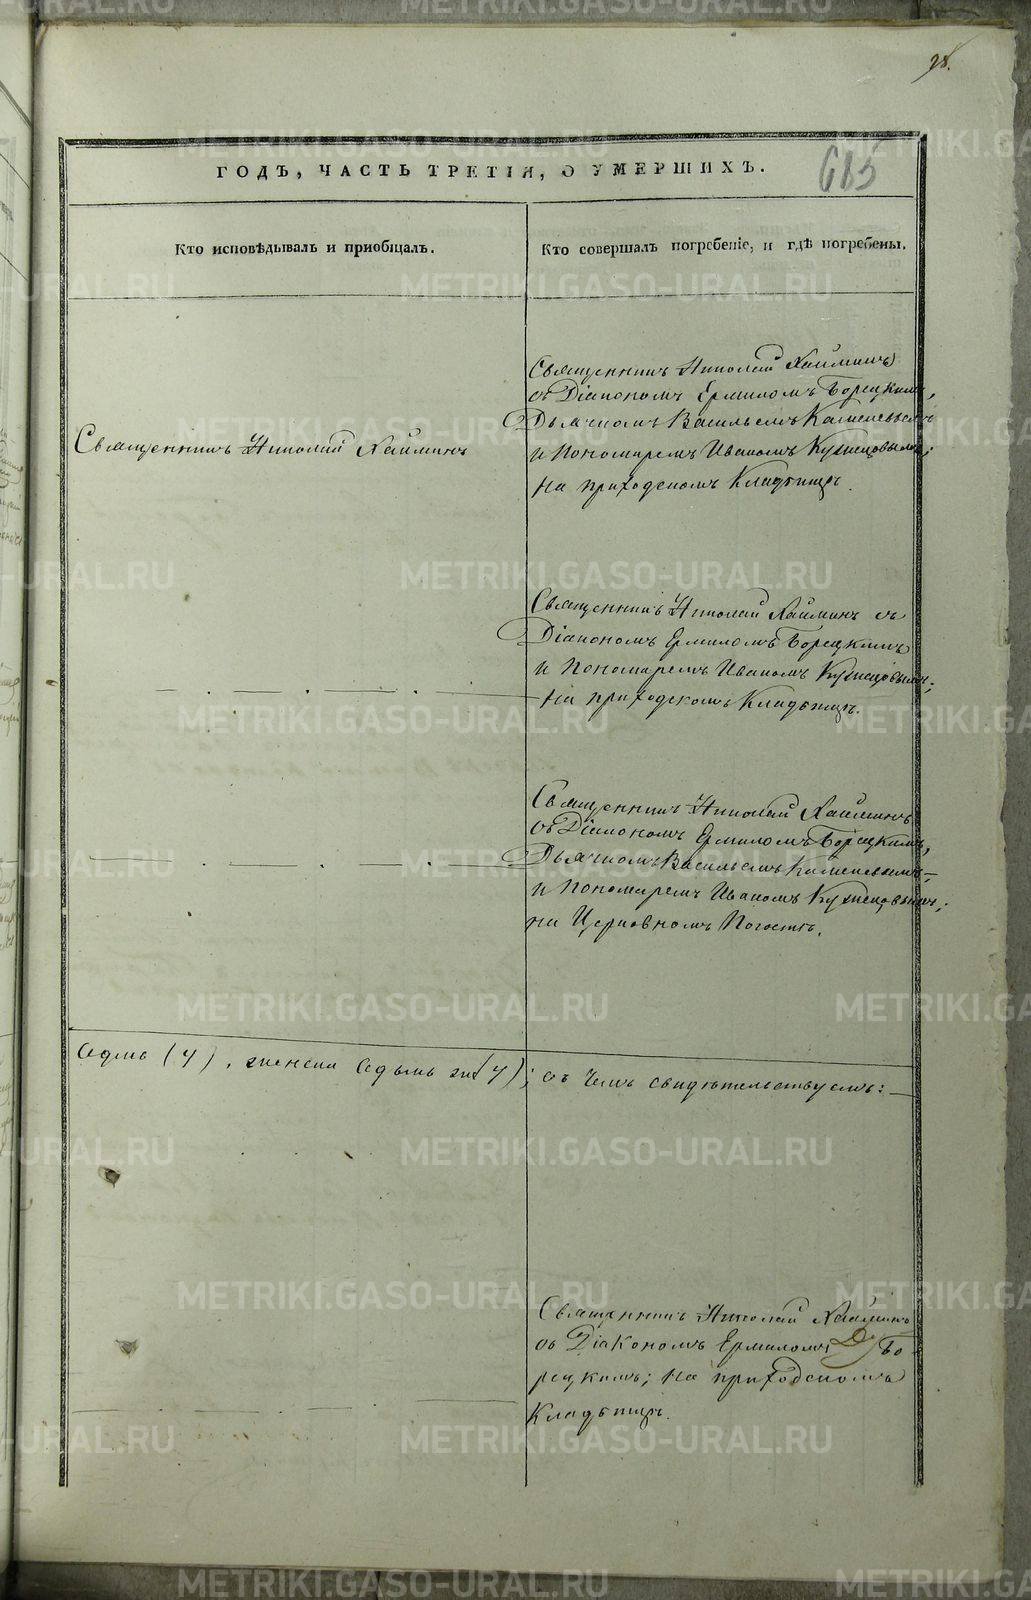 98.
ГОДЪ, ЧАСТЬ ТРЕТІЯ, О УМЕРШИХЪ.
685
Кто исповѣдывалъ и пріобщалъ.
Кто совершалъ погребеніе, и гдѣ погребены.
Священникъ Николай Хайминъ
Священникъ Николай Хайминъ
съ Діакономъ Ермиломъ Борецкимъ,
Дьячкомъ Васильемъ Каменевымъ
и Пономаремъ Иваномъ Кузнецовымъ;
на приходскомъ Кладбищѣ.
Священникъ Николай Хайминъ съ
Діакономъ Ермиломъ Борецкимъ
и Пономаремъ Иваномъ Кузнецовымъ;
на приходскомъ Кладбищѣ.
Священникъ Николай Хайминъ
съ Діакономъ Ермиломъ Борецкимъ,
Дьячкомъ Васильемъ Каменевымъ
и Пономаремъ Иваномъ Кузнецовымъ;
на Церковномъ Погостѣ.
седмь, женска седьмь; въ чемъ свидѣтельствуемъ:
Священникъ Николай Хайминъ
съ Діакономъ Ермиломъ Бо-
рецкимъ; на приходскомъ
Кладбищѣ.
METRIKI.GASO-URAL.RU